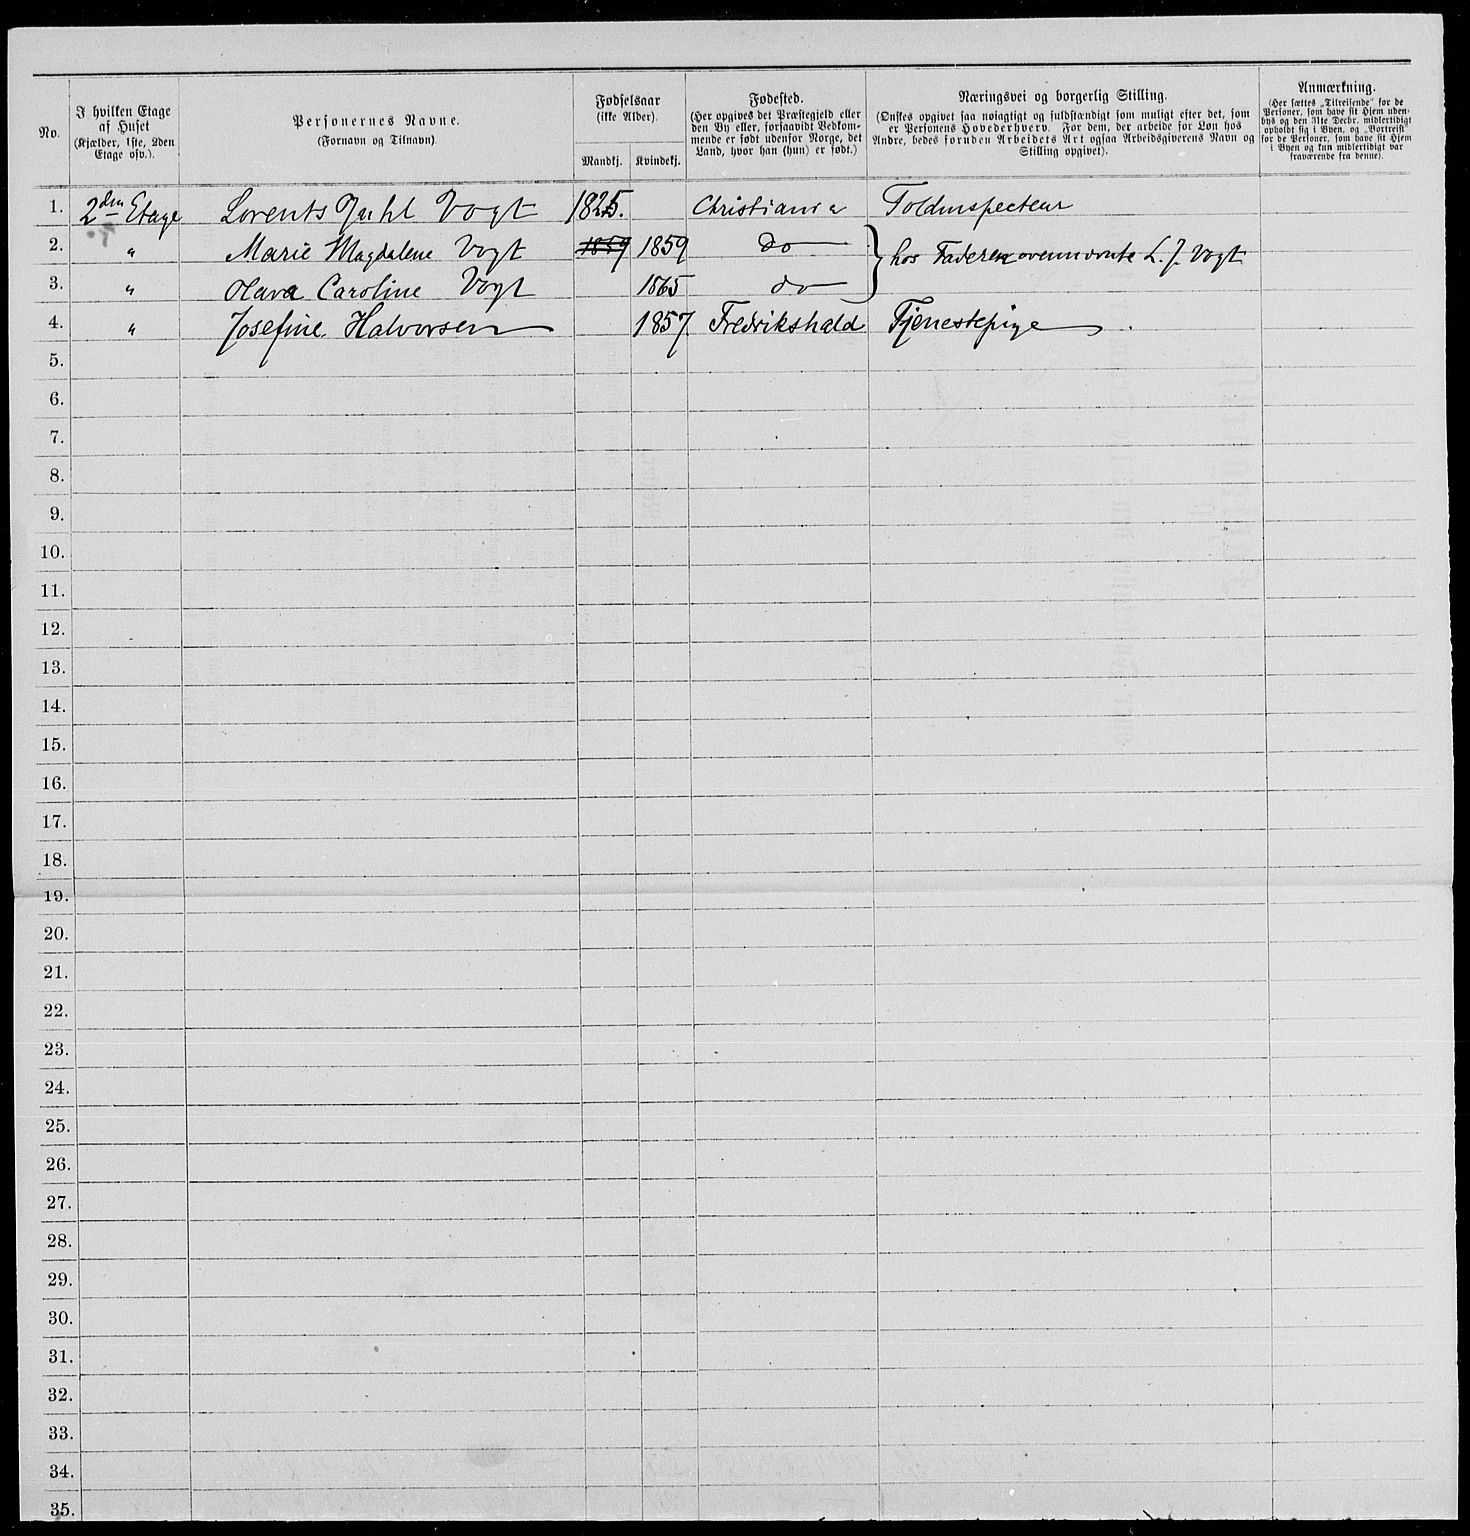 No.
I hvilken Etage af Huset
(Kjælder, 1ste, 2den Etage osv.).
Personernes Navne.
(Fornavn og Tilnavn)
Fødselsaar
(ikke Alder).
Mandkj. Kvindekj.
Fødested.
(Her opgives det Præstegjeld eller
den By eller, forsaavidt Vedkom-
mende er født udenfor Norge, det
Land, hvor han (hun) er født.)
Næringsvei og borgerlig Stilling.
(Ønskes opgivet saa nøiagtigt og fuldstændigt som muligt efter det, som
er Personens Hovederhverv. For dem, der arbeide for Løn hos
Andre, bedes foruden Arbeidets Art ogsaa Arbeidsgiverens Navn og
Stilling opgivet).
Anmærkning.
(Her sættes „Tilreisende" for de
Personer, som have sit Hjem uden-
bys og den 31te Decbr. midlertidigt
opholdt sig i Byen, og „Bortreist"
for de Personer, som have sit Hjem
i Byen og kun midlertidigt var
fraværende fra denne).
1. 2den Etage Lorents Juhl Vogt 1825. Christiania Toldinspecteur
2. " Marie Magdalene Vogt 1859 1859 do
hos Faderen ovennævnte L. J. Vogt
3. " Olava Caroline Vogt 1865 do
4. " Josefine Halvorsen 1857. Fredrikshald Tjenestepige
5.
6.
7.
8.
9.
10.
11.
12.
13.
14.
15.
16.
17.
18.
19.
20.
21.
22.
23.
24.
25.
26.
27.
28.
29.
30.
31.
32.
33.
34.
35.